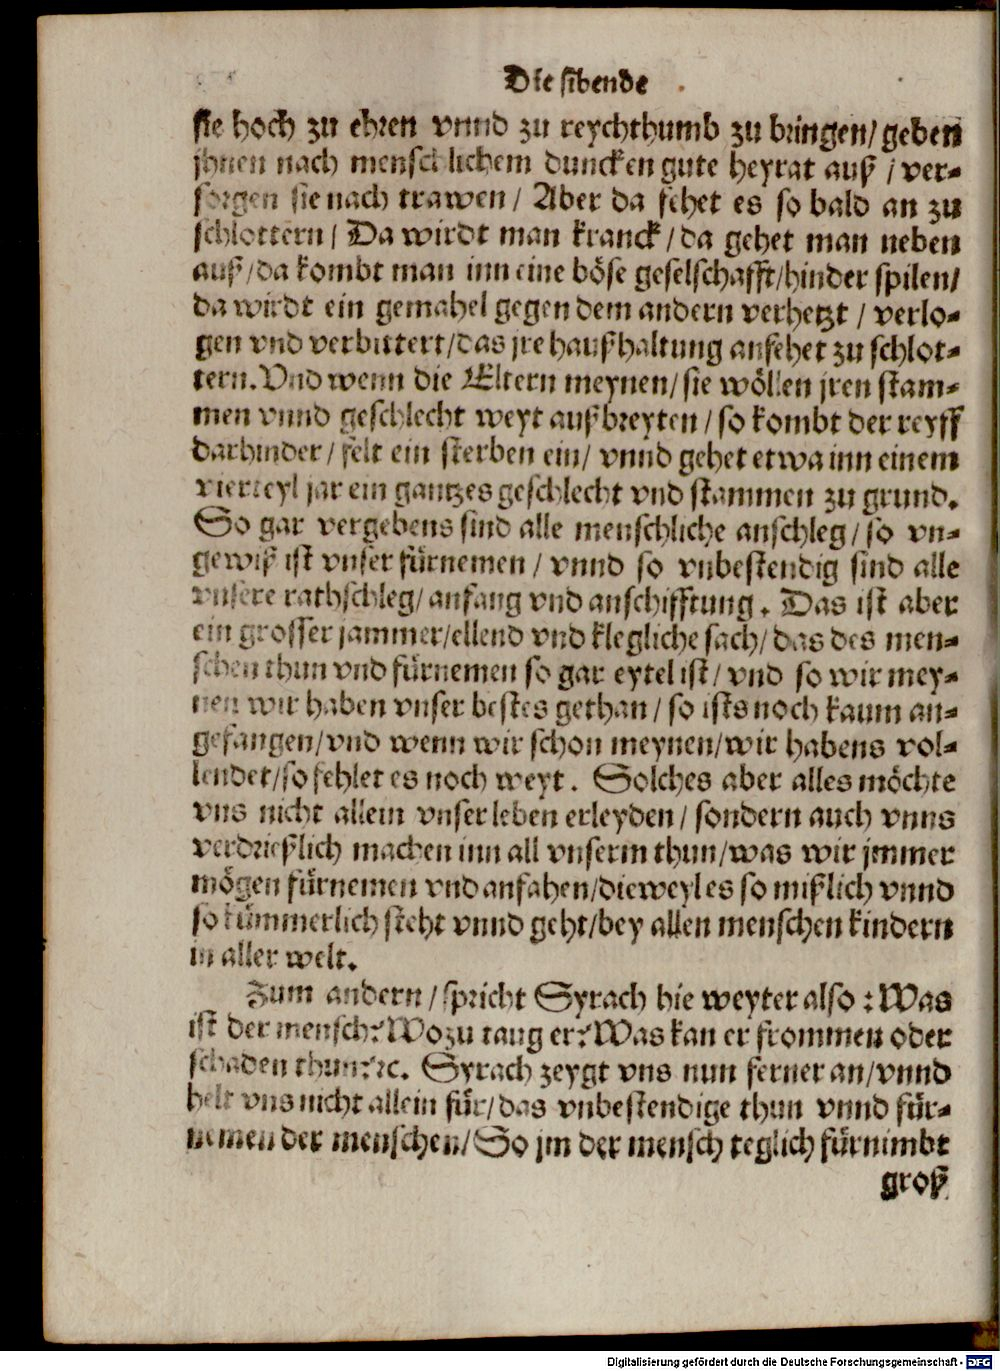 Die sibende
sie hoch zu ehren vnnd zu reychthumb zu bringen/ geben
jhnen nach menschlichem duncken gute heyrat auß / ver-
sorgen sie nach trawen / Aber da fehet es so bald an zu
schlottern / Da wirdt man kranck / da gehet man neben
auß / da kombt man inn eine böse geselschafft/hinder spilen/
da wirdt ein gemahel gegen dem andern verhetzt / verlo-
gen vnd verbittert/das jre haußhaltung anfehet zu schlot-
tern. Vnd wenn die Eltern meynen/ sie wöllen jren stam-
men vnnd geschlecht weyt außbreyten / so kombt der reyff
darhinder / felt ein sterben ein/ vnnd gehet etwa inn einem
vierteyl jar ein gantzes geschlecht vnd stammen zu grund.
So gar vergebens sind alle menschliche anschleg / so vn-
gewiß ist vnser fürnemen / vnnd so vnbestendig sind alle
vnsere rathschleg/ anfang vnd anschifftung. Das ist aber
ein grosser jammer/ellend vnd klegliche sach/ das des men-
schen thun vnd fürnemen so gar eytel ist/ vnd so wir mey-
nen wir haben vnser bestes gethan / so ists noch kaum an-
gefangen/vnd wenn wir schon meynen/wir habens vol-
lendet/so fehlet es noch weyt. Solches aber alles möchte
vns nicht allein vnser leben erleyden / sondern auch vnns
verdrießlich machen inn all vnserm thun/was wir jmmer
mögen fürnemen vnd anfahen/dieweyl es so mißlich vnnd
so kümmerlich steht vnnd geht/bey allen menschen kindern
in aller welt.
Zum andern / spricht Syrach hie weyter also : Was
ist der mensch? Wozu taug er? Was kan er frommen oder
schaden thun? ꝛc. Syrach zeygt vns nun ferner an/vnnd
helt vns nicht allein für/ das vnbestendige thun vnnd für-
nemen der menschen/ So jm der mensch teglich fürnimbt
groß
Digitalisierung gefördert durch die Deutsche Forschungsgemeinschaft - DFG